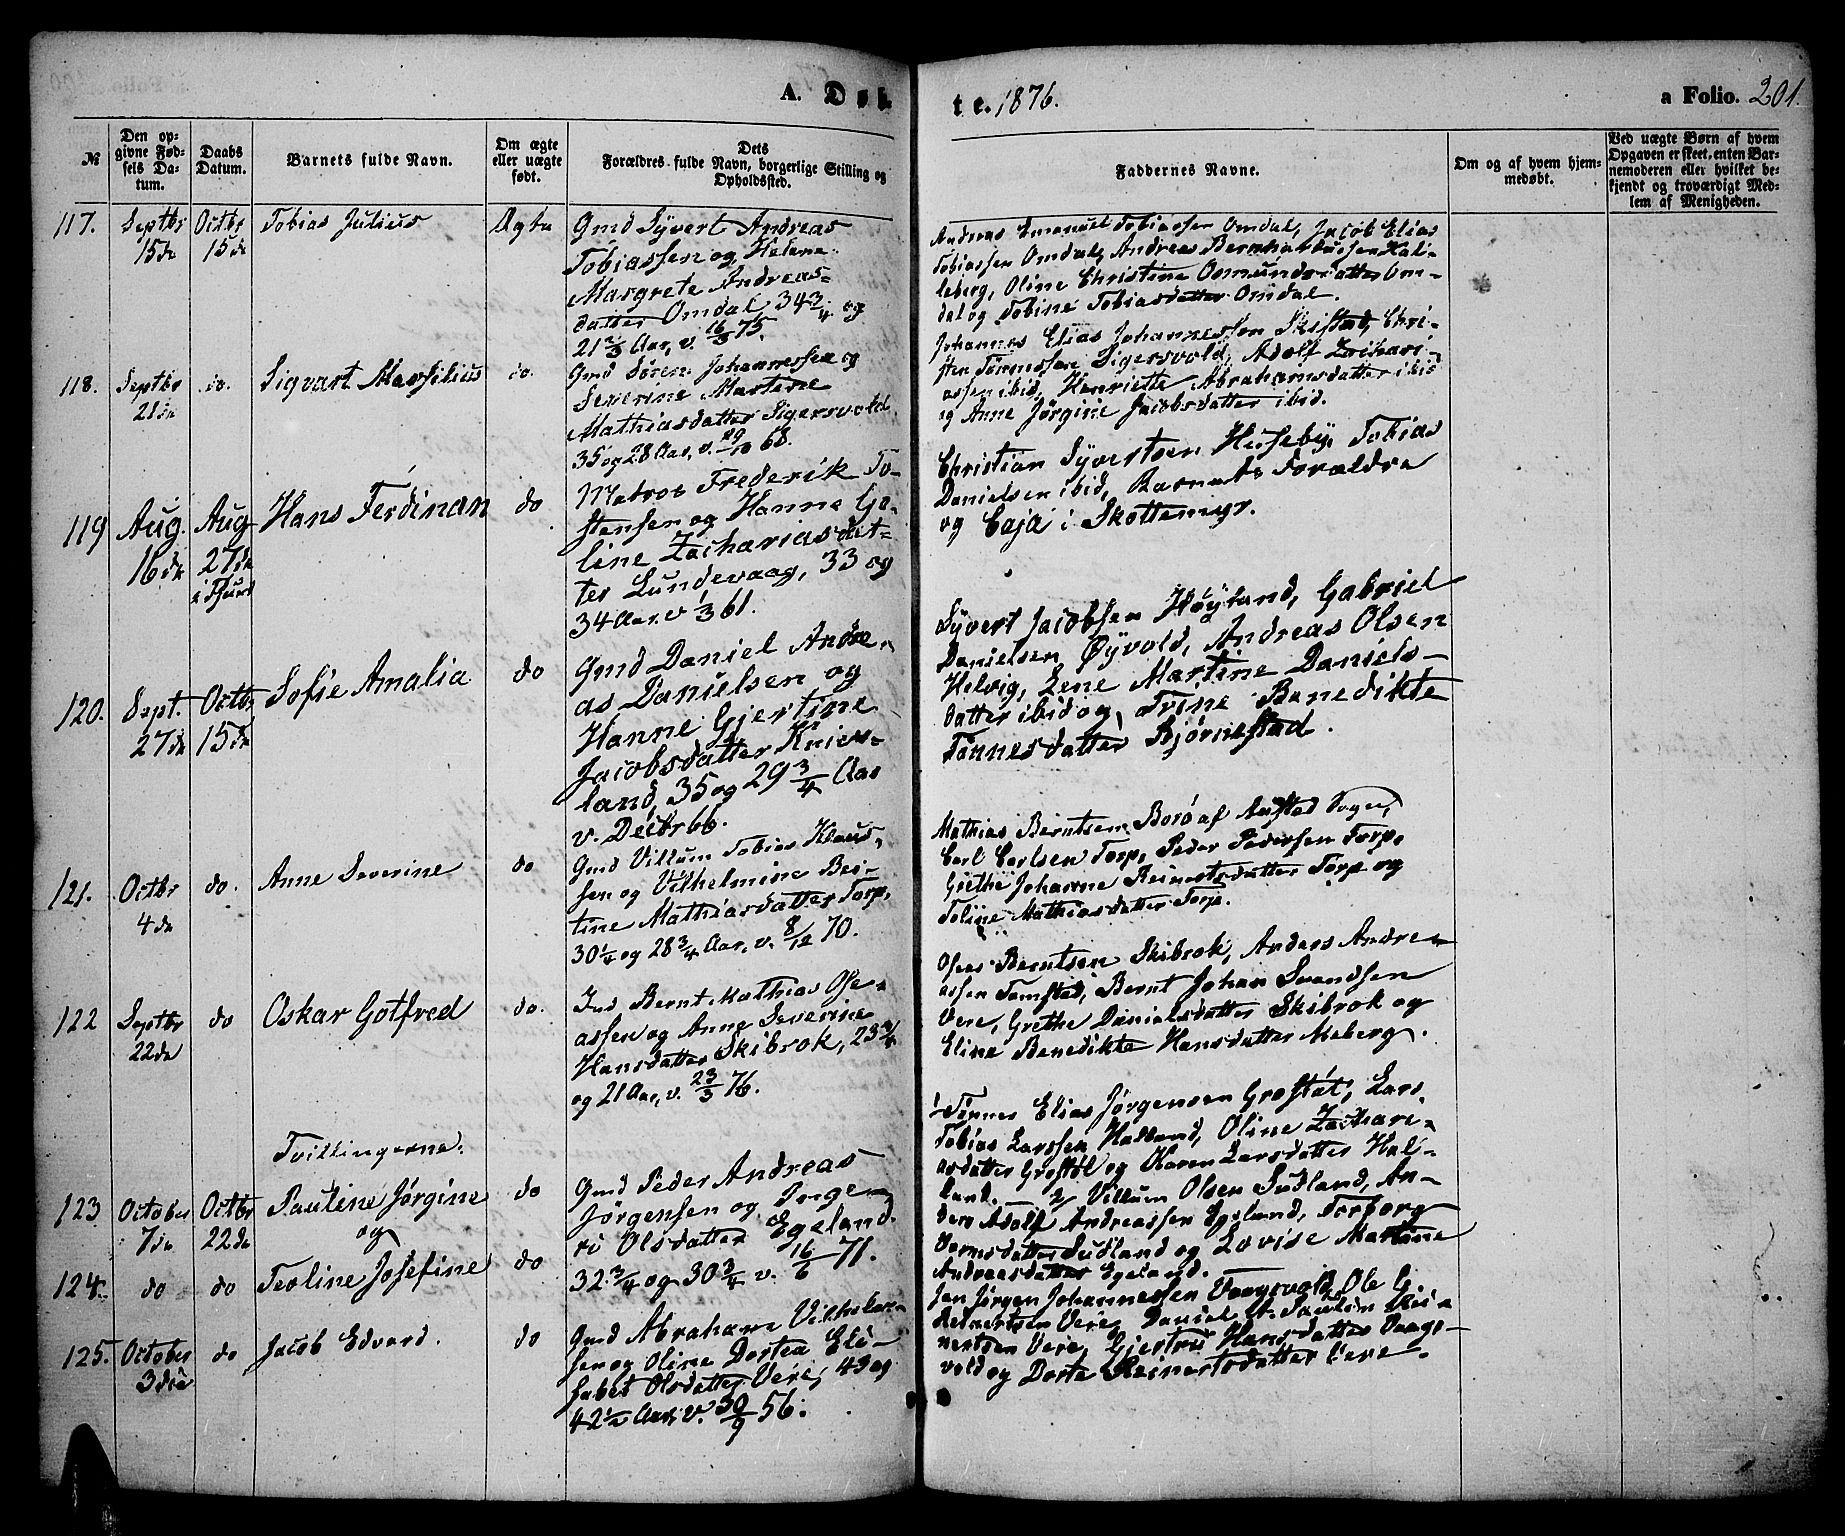 A. Døb
te. 1876.
a Folio. 201.
№
Den op-
givne Fød-
sels Da-
tum.
Daabs
Datum.
Barnets fulde Navn.
Om ægte
eller uægte
født.
Dets
Forældres fulde Navn, borgerlige Stilling og
Opholdssted.
Faddernes Navne.
Om og af hvem hjem-
medøbt.
Ved uægte Børn af hvem
Opgaven er skeet, enten Bar-
nemoderen eller hvilket be-
kjendt og troværdigt Med-
lem af Menigheden.
117.
Septbr
15de
Octbr
15de
Tobias Julius
Ægte
Gmd Syvert Andreas
Tobiassen og Helene
Margrete Andreas-
datter Omdal 34 3/4 og
21 2/3 Aar, v. 16/3 75.
Andreas Emanuel Tobiassen Omdal, Jacob Elias
Tobiassen Omdal, Andreas Bernhardussen Kal-
leberg, Oline Christine Osmundsdatter Om-
dal og Tobine Tobiasdatter Omdal.
118.
Septbr
21de
do.
Sigvart Marsilius
do.
Gmd Søren Johannessen og
Severine Martine
Mathiasdatter Sigersvold
35 og 28 Aar, v. 29/10 68.
Johannes Elias Johannessen Skistad, Chri-
sten Tønnessen Sigersvold, Adolf Zachari-
assen ibid, Henriette Abrahamsdatter ibid
og Anne Jørgine Jacobsdatter ibid.
119
Aug.
16de
Aug
27de
Hans Ferdinan
do
Matros Frederik To-
stensen og Hanne Ga-
line Zachariasdat-
ter Lundevaag, 33 og
34 Aar. v 1/3 61.
Christian Syvertsen Huseby, Tobias
Danielsen ibid, Barnets Forældre
og Caja i Skottemyr.
120.
Sept.
27de
Octbr
15de
Sofie Amalia
do
Gmd Daniel Andre-
as Danielsen og
Hanne Gjertine
Jacobsdatter Knivs-
land, 35 og 29 3/4 Aar
v. Decbr 66.
Syvert Jacobsen Høyland, Gabriel
Danielsen Øyvold, Andreas Olsen
Helvig, Lene Martine Daniels-
datter ibid og Trine Benedikte
Tønnesdatter Bjørnestad.
121.
Octbr
4de
do.
Anne Severine
do
Gmd Villum Tobias Klaus-
sen og Vilhelmine Ber-
tine Mathiasdatter Torp,
30 1/4 og 28 3/4 Aar, v. 8/12 70.
Mathias Berntsen Borø af Austad Sogn,
Carl Carlsen Torp, Peder Pedersen Torp,
Grethe Johanne Reinertsdatter Torp og
Toline Mathiasdatter Torp.
122
Septbr
22de
do
Oskar Gotfred
do.
Ind Bernt Mathias Ose-
assen og Anne Severine
Hansdatter Skibrok, 23 3/4
og 21 Aar, v. 23/3 76.
Oseas Berntsen Skibrok, Anders Andre-
assen Tomstad, Bernt Johan Svendsen
Vere, Grethe Danielsdatter Skibrok og
Eline Benedikte Hansdatter Meberg.
Tvillingerne:
123
October
7de
Octbr
22de
Pauline Jørgine
og
do
Gmd Peder Andreas
Jørgensen og Inge-
ri Olsdatter Egeland
32 3/4 og 30 3/4 v. 16/6 71.
1. Tønnes Elias Jørgensen Grostøl, Lars
Tobias Larssen Halland, Oline Zachari-
asdatter Grostøl og Karen Larsdatter Hal-
land. — 2 Villum Olsen Sudland, An-
ders Adolf Andreassen Egeland, Torborg
Sudland og Lovise Martine
Andreasdatter Egeland.
124.
do
do
Teoline Josefine
do
125.
October
3die
do
Jacob Edvard.
do
Gmd Abraham Vilhelm-
sen og Oline Dortea Eli-
sabet Olsdatter Vere, 43 og
42 1/2 Aar, v. 30/9 56.
Jen Jørgen Johannessen Vaagsvold, Ole G.
Reinertsen Vere, Daniel A. Paulin Rei-
nertsen Vere, Gjertru Hansdatter Vaags-
vold og Dorte Reinertsdatter Vere.